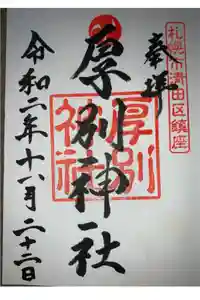 札幌市清田区鎮座
奉拝
厚別神社
厚別
神社
令和二年十一月二十二日